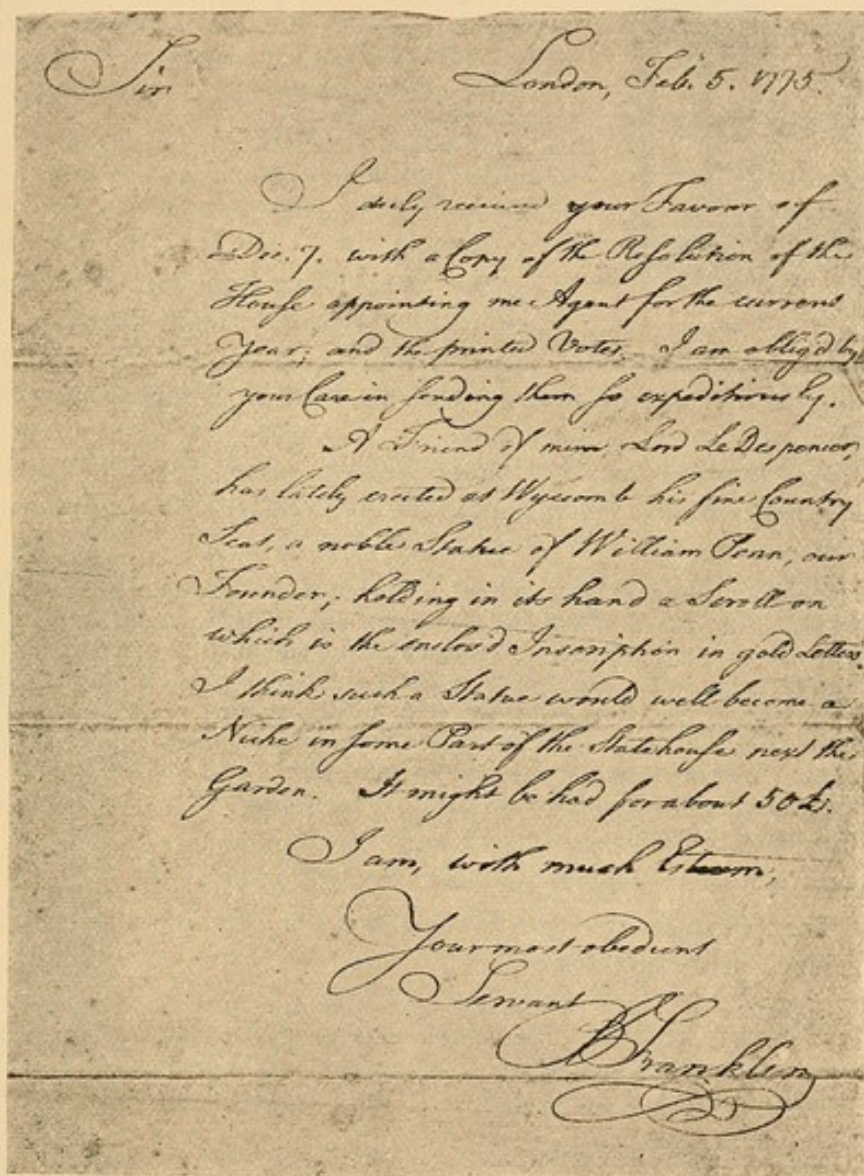 Sir
London, Feb. 5. 1775.
I duly received your Favour of
Dec. 7. with a Copy of the Resolution of the
House appointing me Agent for the current
Year; and the printed Votes. I am oblig'd by
your Care in sending them so expeditiously.
A Friend of mine, Lord Le Despencer,
has lately erected at Wycomb his fine Country
Seat, a noble Statue of William Penn, our
Founder; holding in its hand a Scroll on
which is the enclos'd Inscription in gold Letters.
I think such a Statue would well become a
Niche in some Part of the Statehouse next the
Garden. It might be had for about 50£.
I am, with much Esteem,
Your most obedient
Servant
B Franklin